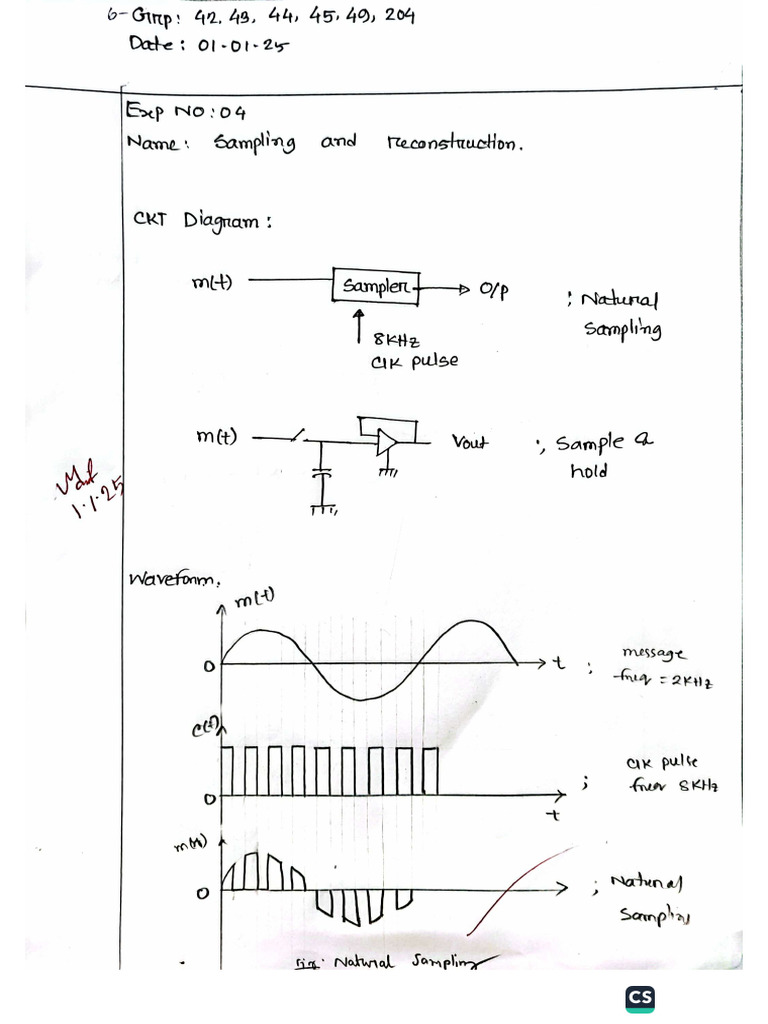 6-Grp: 42, 43, 44, 45, 49, 204
Date: 01-01-25
Exp NO: 04
Name: Sampling and reconstruction.
CKT Diagram:
m(t) Sampler O/P ; Natural
Sampling
8KHz
Clk pulse
m(t) Vout ; Sample &
hold
1.1.25
Waveform.
m(t)
0 t ; message
freq = 2KHz
c(t)
0 ; Clk pulse
freq 8KHz
t
0 ; Natural
Sampling
Fig: Natural Sampling
CS